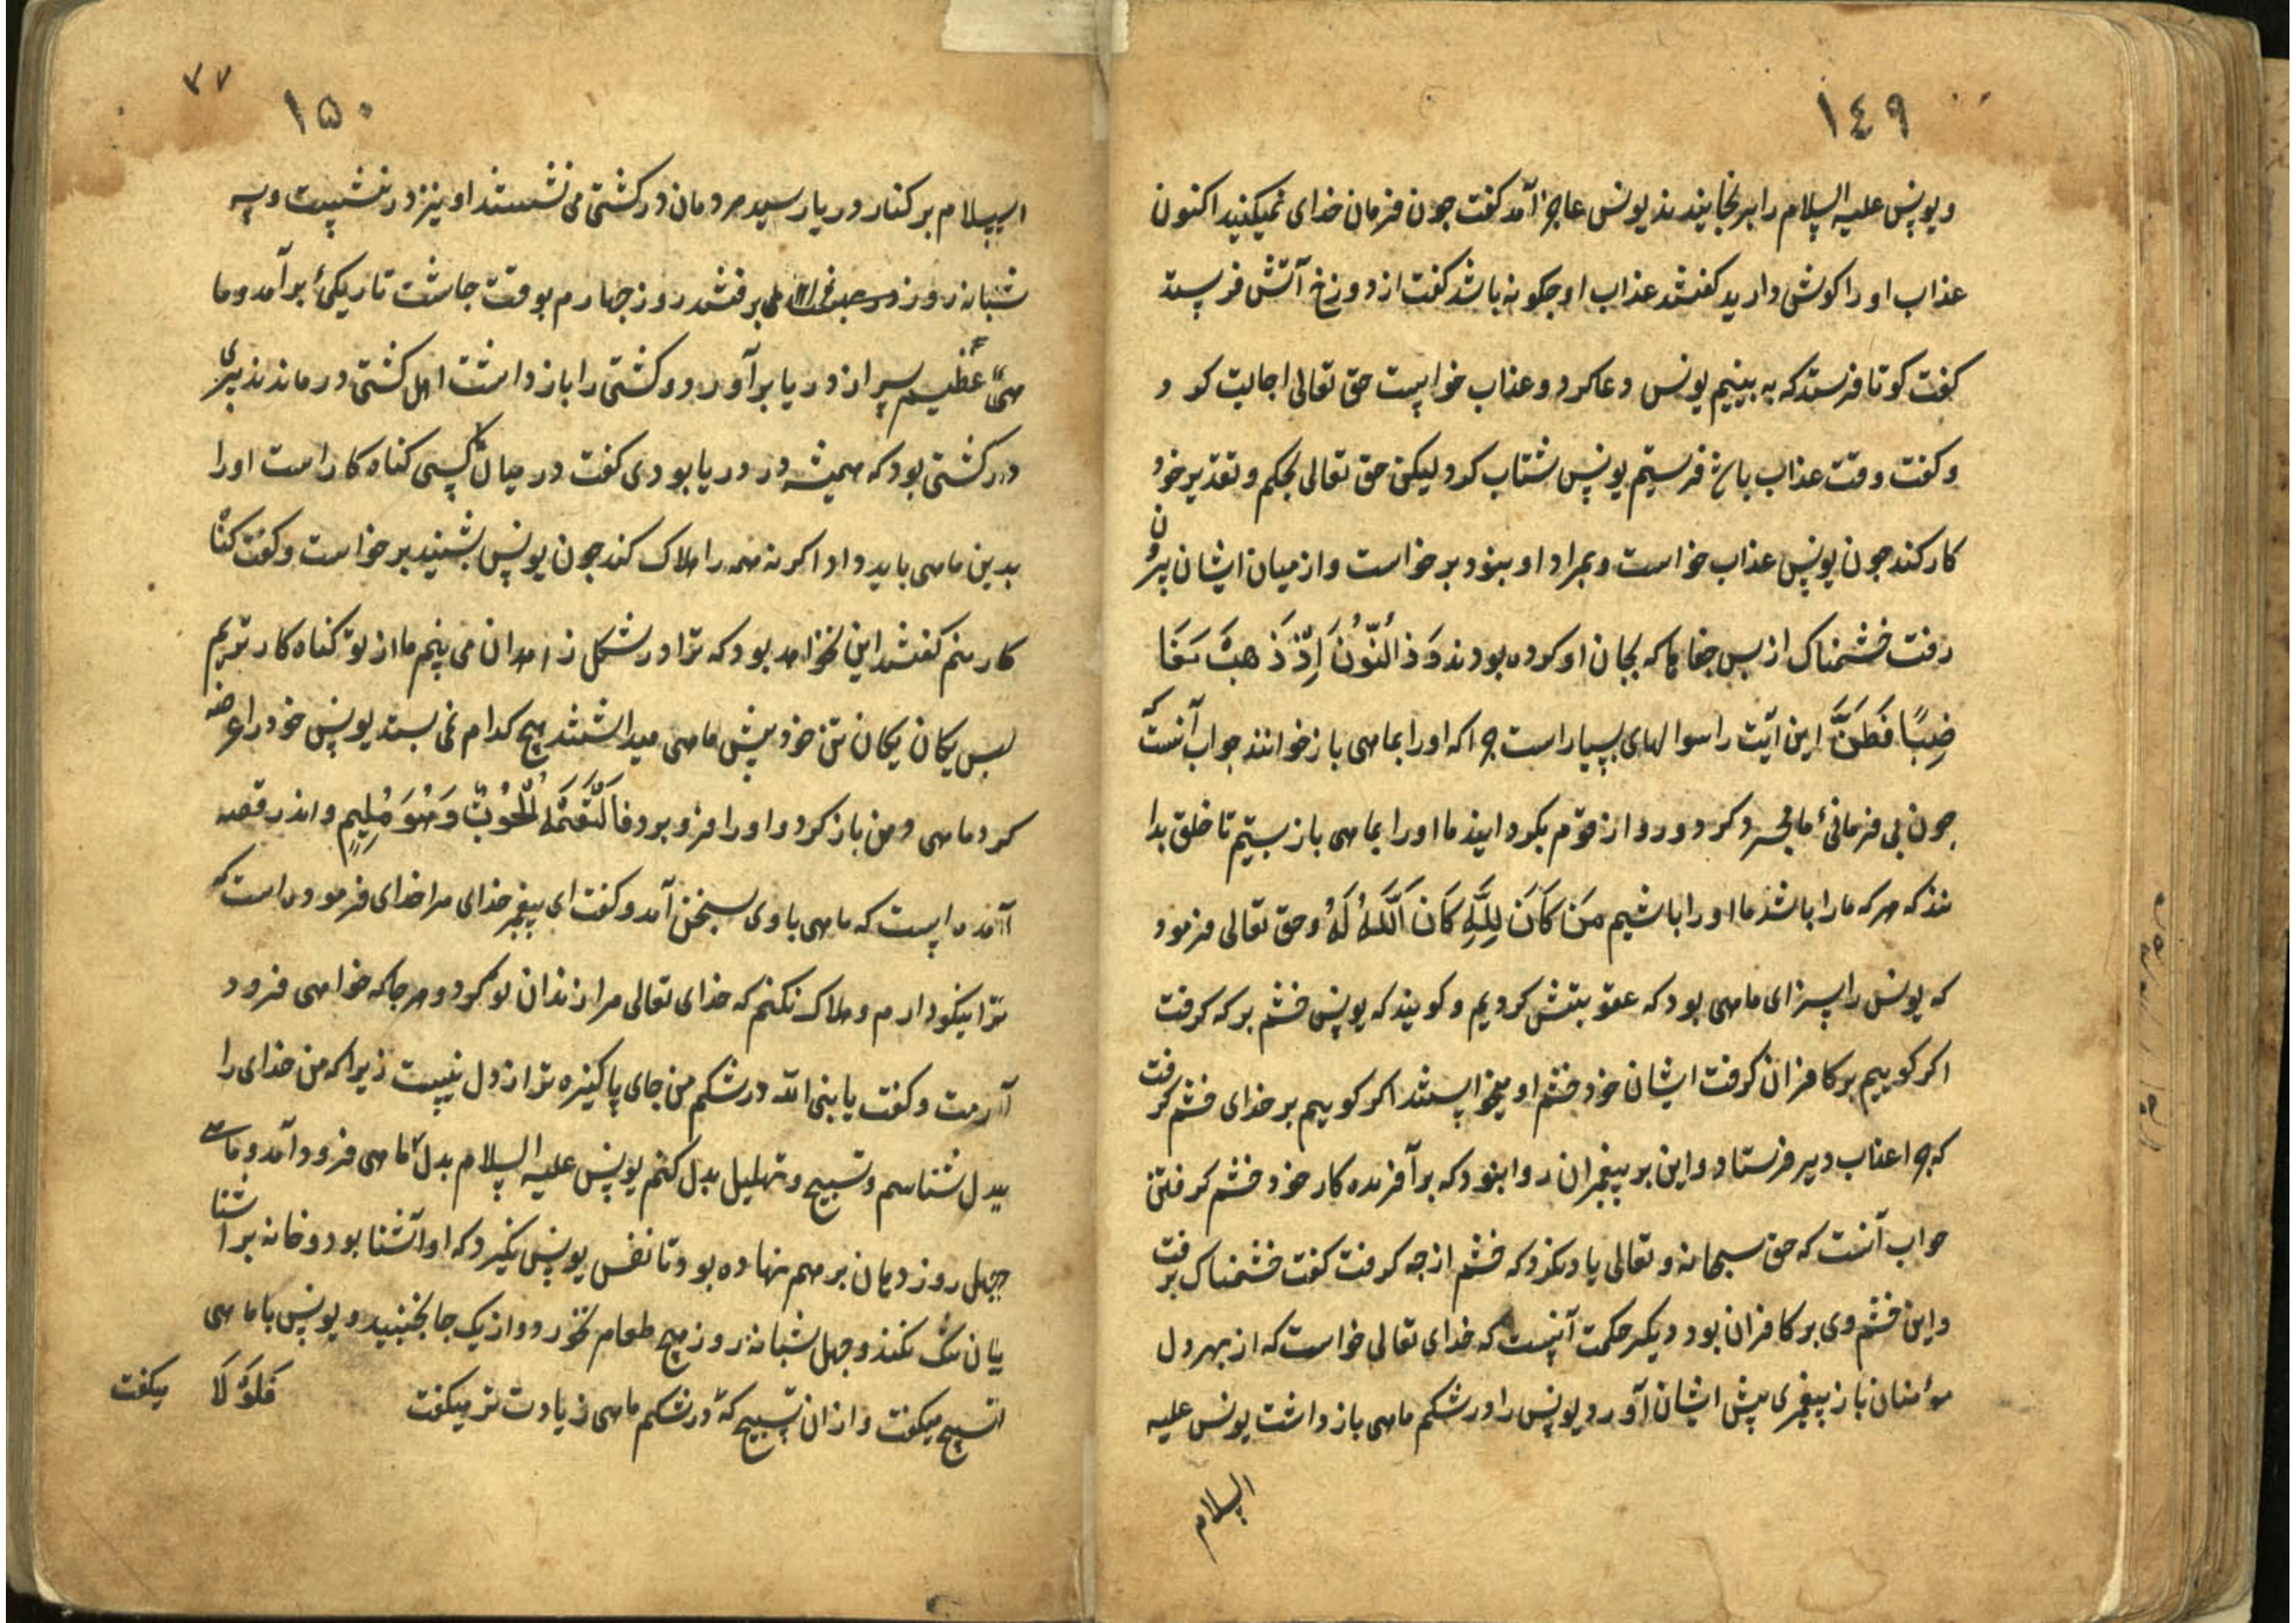 ١٤٩
ویونس علیه السلام را برنجانیدند یونس عاجز آمد کفت جون فرمان خدای نمیکنید اکنون
عذاب او را کوش دارید کفتند عذاب او جکونه باشد کفت از دوزخ آتش فرستد
کفت کو تا فرستد که به بینیم یونس دعا کرد و عذاب خواست حق تعالی اجابت کرد
و کفت وقت عذاب فرستیم یونس شتاب کرد لیکن حق تعالی بحکم و تقدیر خود
کار کند جون یونس عذاب خواست و بمراد او نبود برخواست و از میان ایشان بیرون
رفت خشمناک از بس جفاها که بجان او کرده بودند وَذَالنُّونُ اِذْ ذَهَبَ مُغَا
ضِبًا فَظَنَّ این آیت را سوالهای بسیار است جرا که او را بماهی باز خوانند جواب آنست که
جون بی فرمانیٔ ما کرد و رو از قوم بکردانید ما او را بماهی باز بستیم تا خلق بدا
نند که هر که ما را باشد ما او را باشیم مَنْ كَانَ لِلّٰهِ كَانَ اللّٰهُ لَهُ و حق تعالی فرمود
که یونس را سزای ماهی بود که عقوبتش کردیم و کویند که یونس خشم بر که کرفت
اکر کوییم بر کافران کرفت ایشان خود خشم او میخواستند اکر کوییم بر خدای خشم کرفت
که جرا عذاب دیر فرستاد و این بر پیغمبران روا نبود که بر آفریده کار خود خشم کرفتن
جواب آنست که حق سبحانه و تعالی یاد نکرد که خشم از جه کرفت کفت خشمناک برفت
و این خشم وی بر کافران بود دیکر حکمت آنست که خدای تعالی خواست که از بهر دل
مؤمنان باز پیغمبری پیش ایشان آورد یونس را در شکم ماهی باز داشت یونس علیه
السلام
٧٧
١٥٠
السلام بر کنار دریا رسید مردمان در کشتی می نشستند او نیز در نشست و سه
شبانه روز برفتند روز جهارم بوقت جاشت تاریکیٔ برآمد و ما
هیٔ عظیم سر از دریا برآورد و کشتی را باز داشت اهل کشتی در ماندند پیری
در کشتی بود که همیشه در دریا بودی کفت در میان ما کسی کناه کار است او را
بدین ماهی باید داد اکر نه همه را هلاک کند جون یونس بشنید برخواست و کفت کناه
کار منم کفتند این نخواهد بود که ترا در شکل زاهدان می بینم ما از تو کناه کار تریم
بس یکان یکان تن خود پیش ماهی میداشتند هیج کدام نمی بستد یونس خود را عرضه
کرد ماهی دهن باز کرد و او را فرو برد فَالْتَقَمَهُ الْحُوتُ وَهُوَ مُلِيمٌ و اندر قصه
آمده است که ماهی با وی بسخن آمد و کفت ای پیغمبر خدای مرا خدای فرموده است که
ترا نیکو دارم و هلاک نکنم که خدای تعالی مرا زندان تو کرد و هر جا که خواهی فرود
آرمت و کفت یا نبی الله در شکم من جای پاکیزه تر از دل نیست زیرا که من خدای را
بدل شناسم و تسبیح و تهلیل بدل کنم یونس علیه السلام بدل ماهی فرود آمد و ماهی
جهل روز دهان بر هم نهاده بود تا نفس یونس نکیرد که او آشنا بود و خانه بر آشنا
یان تنک نکند و جهل شبانه روز هیج طعام نخورد و از یک جا نجنبید و یونس با ماهی
تسبیح میکفت و از آن تسبیح که در شکم ماهی زیادت تر میکفت
فَلَوْلَا
میکفت